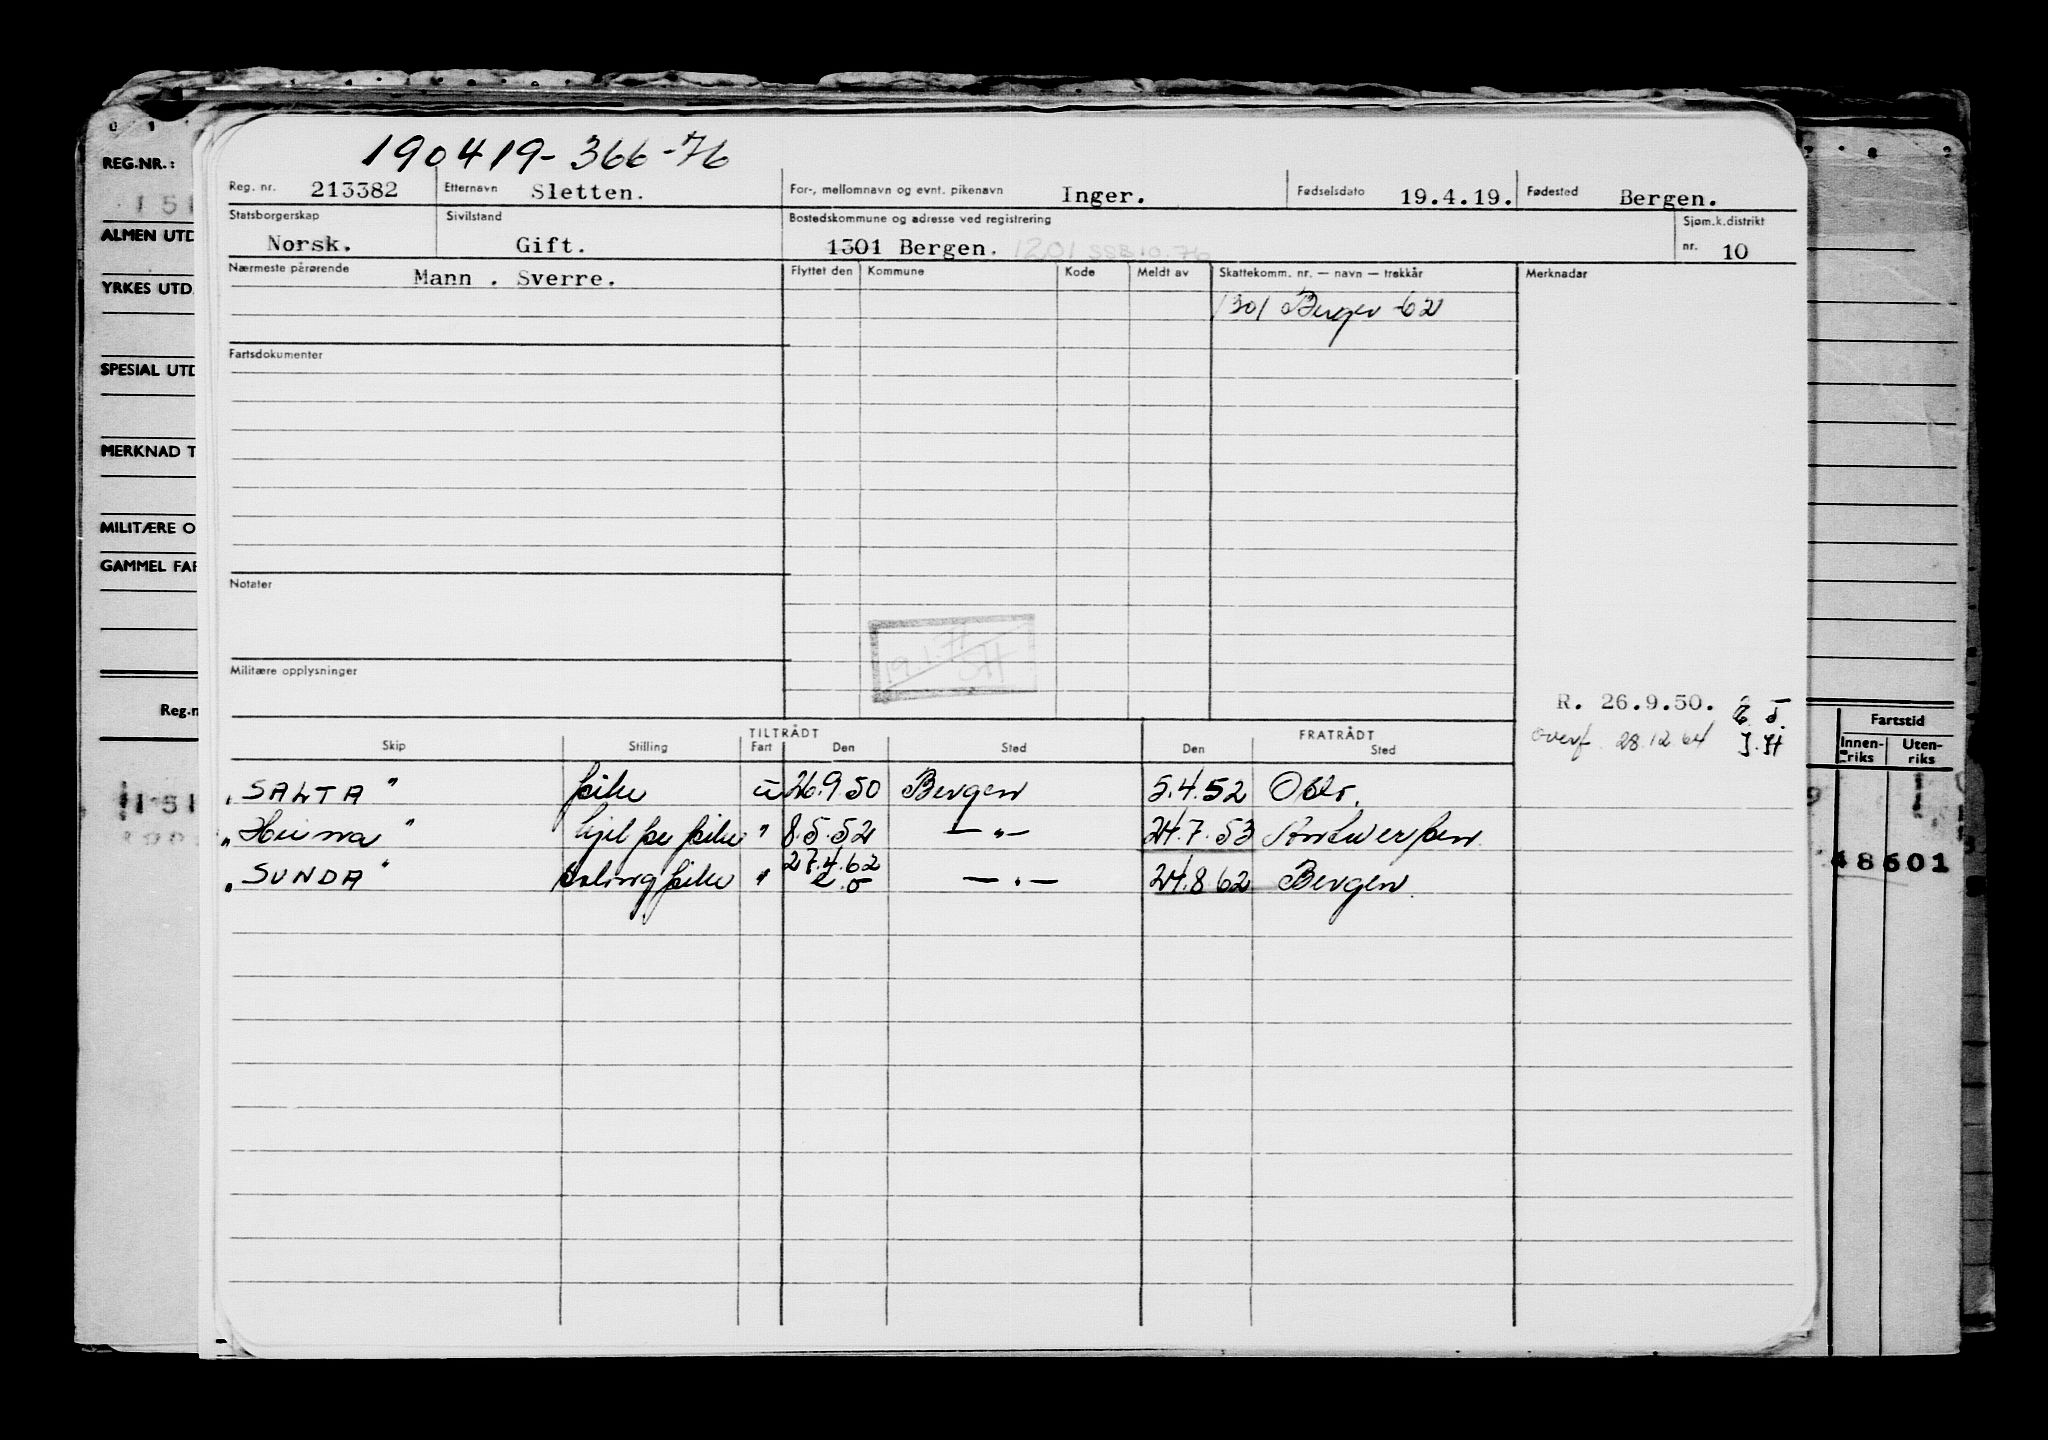 190419-366-76
Reg. nr. 213382 Etternavn Sletten. For-, mellomnavn og evnt. pikenavn Inger. Fødselsdato 19.4.19. Fødested Bergen.
Statsborgerskap Norsk. Sivilstand Gift. Bostedskommune og adresse ved registrering 1301 Bergen. 1201 SSB 10.76 Sjøm.k.distrikt nr. 10
Nærmeste pårørende Mann . Sverre. Flyttet den Kommune Kode Meldt av Skattekomm. nr. — navn — trekkår Merknadar
1301 Bergen -62
Fartsdokumenter
Notater
19.1.77 SH
Militære opplysninger
R. 26.9.50.
Overf. 28.12.64 J.H
TILTRÅDT FRATRÅDT
Skip Stilling Fart Den Sted Den Sted
"SALTA" pike u 26.9 50 Bergen 5.4.52 Oslo.
" " 8.5.52 — " — 24.7.53 Antwerpen
27.4.62
"SUNDA" " — " — 24.8 62 Bergen.
REG.NR.:
151
ALMEN UTD
YRKES UTD.
SPESIAL UTD
MERKNAD T
MILITÆRE O
GAMMEL FAR
Reg.n
151
Fartstid
Innen-riks Uten-riks
48601